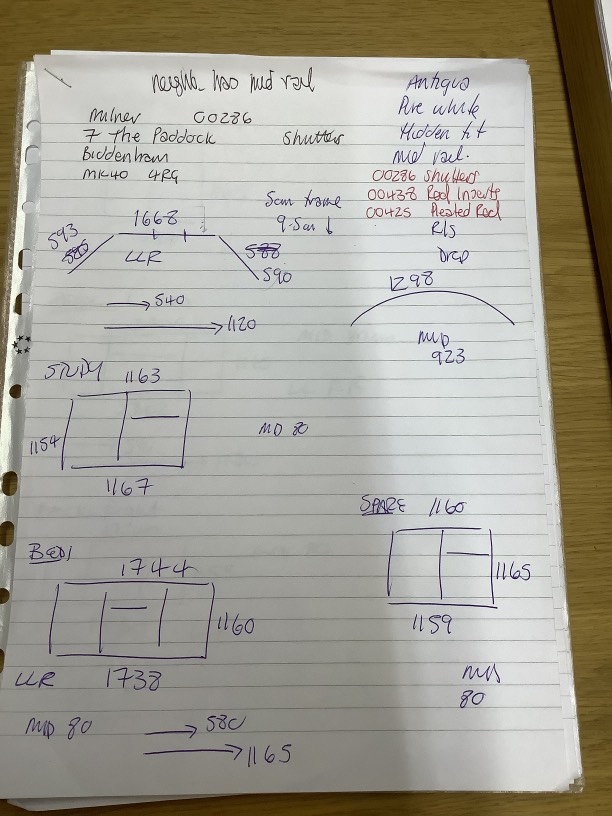 has mid rail
Milner 00286
7 The Paddock Shutters
Biddenham
MK40 4RG
Antigua
Pure white
Hidden tilt
Mid rail.
00286 Shutters
00438 Rod Inserts
00425 Rod
R/S
5cm frame
9.5cm ↓
593
1668
588
590
LLR
→ 540
→ 1120
Drop
1298
M/D
923
STUDY 1163
1154
1167
MD 80
SPARE 1160
1165
1159
M/D
80
BED1
1744
1160
LLR 1738
M/D 80 → 580
→ 1165